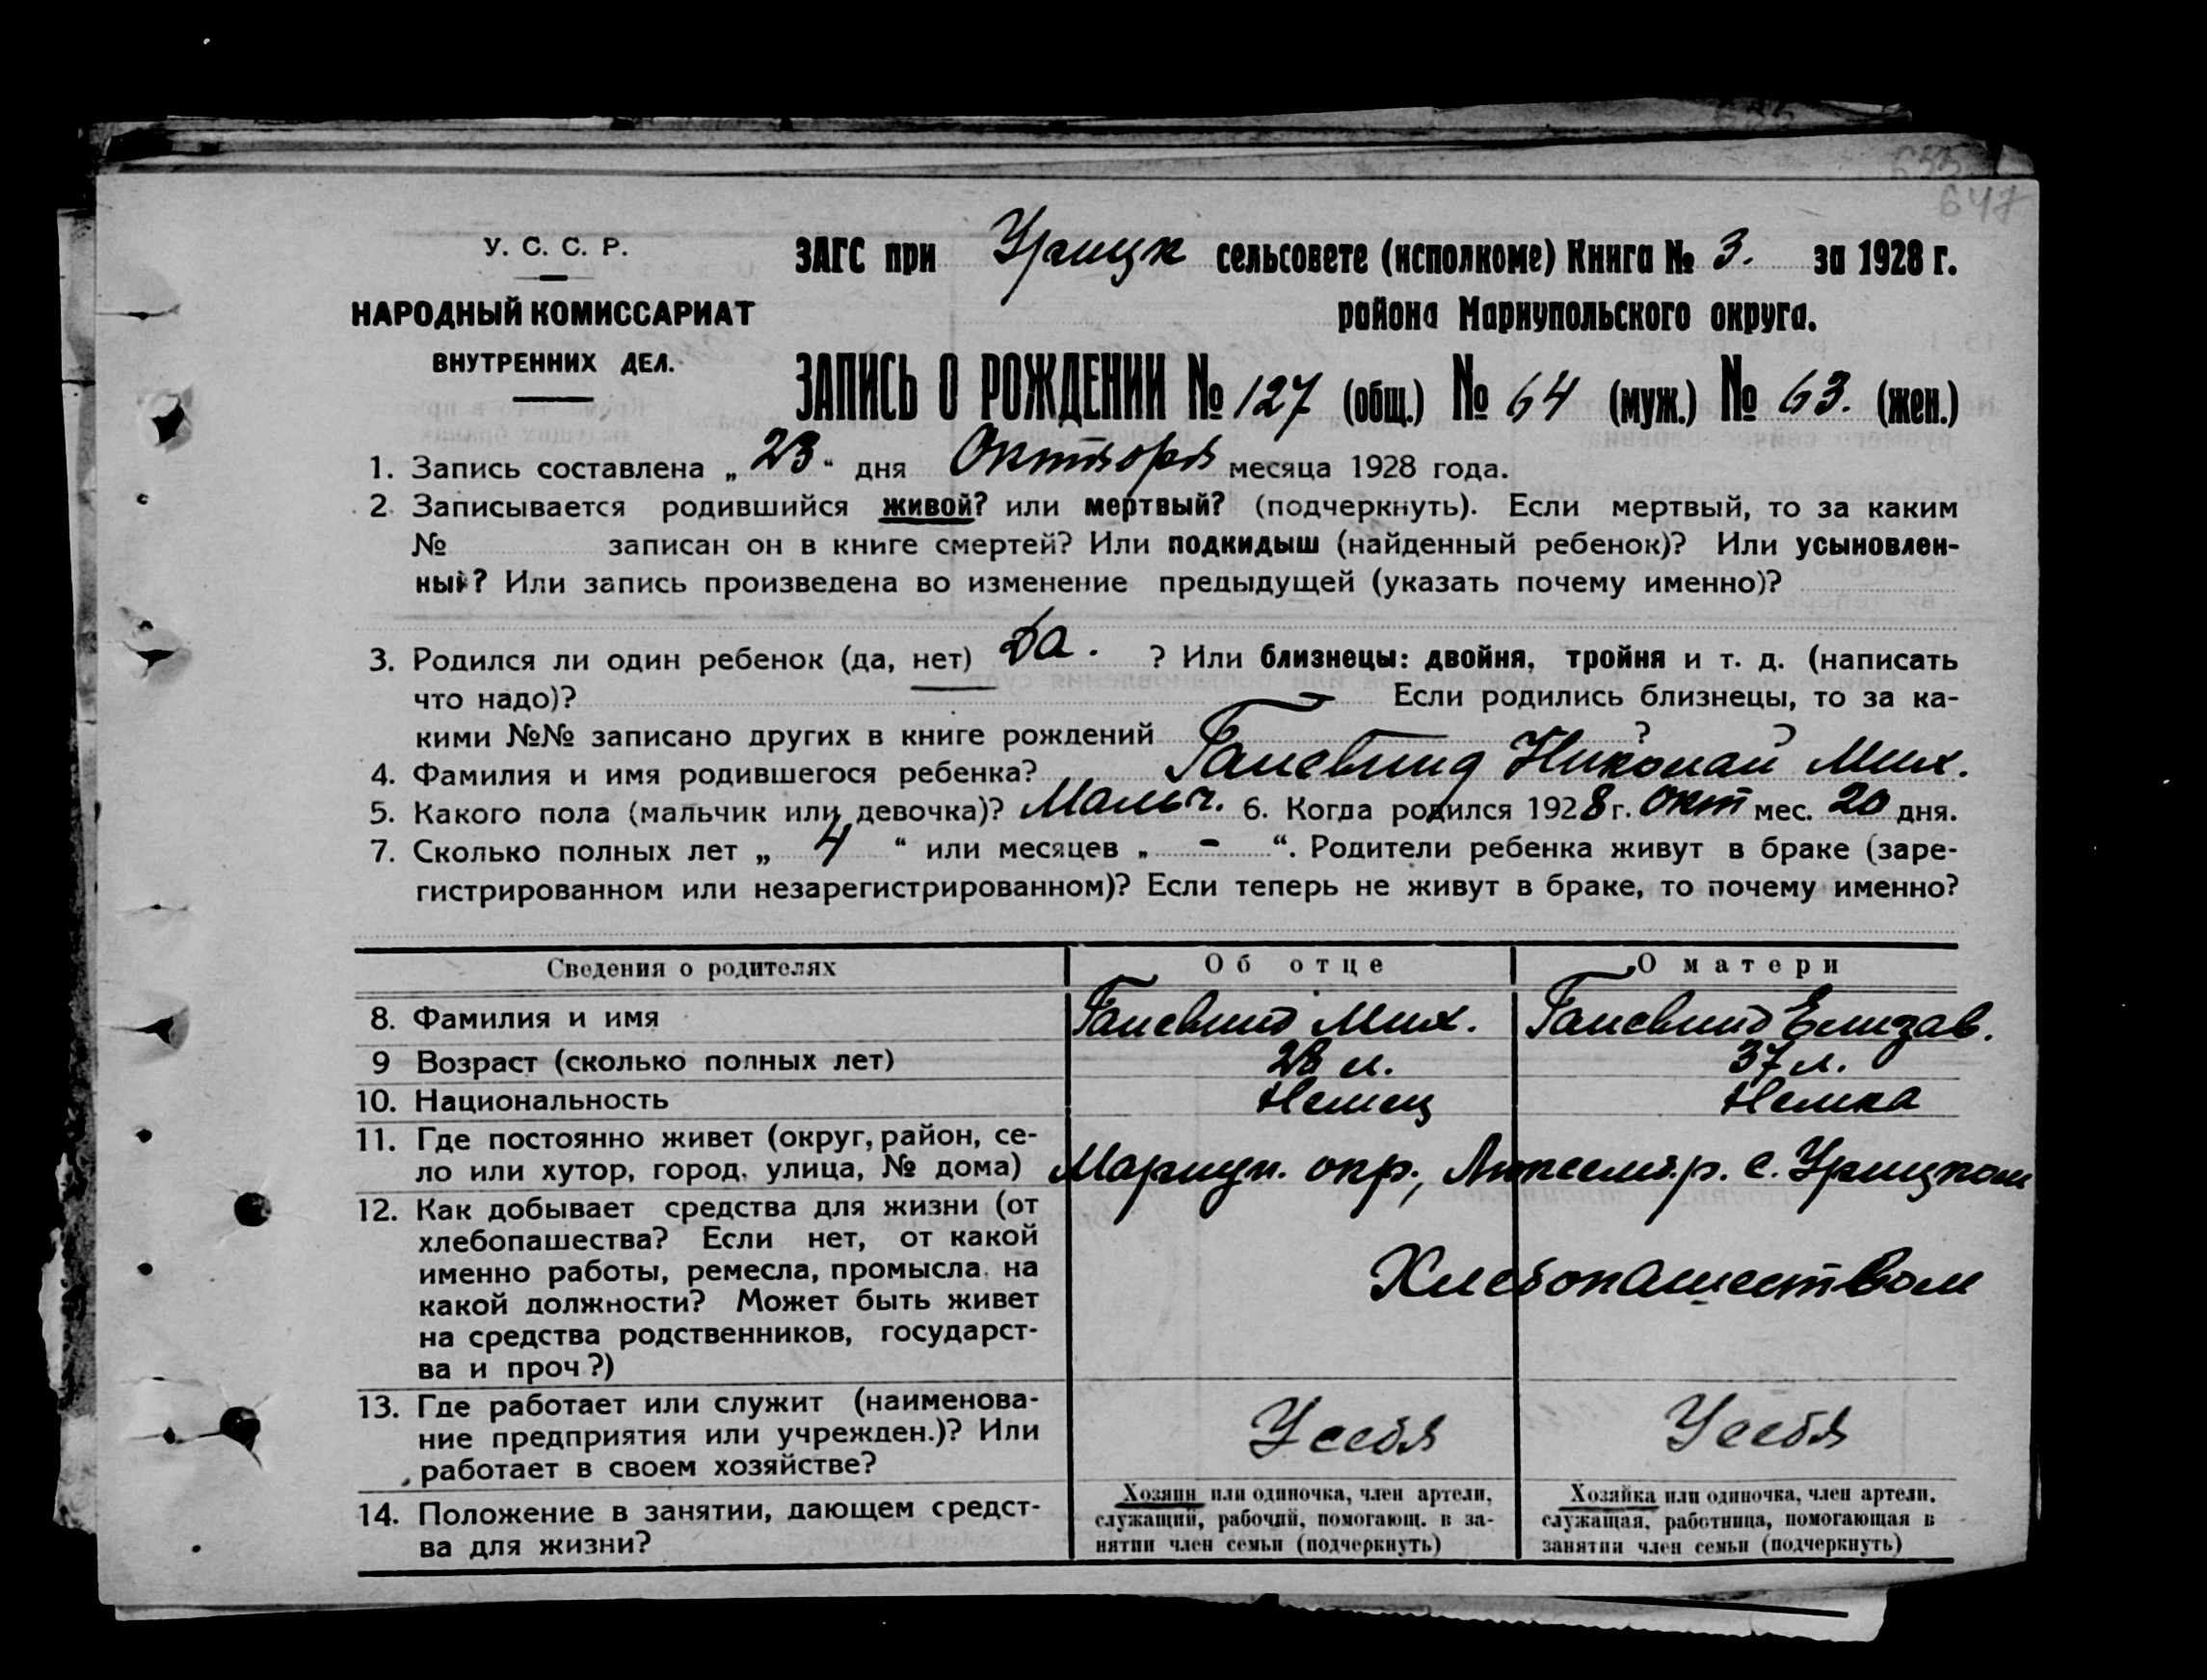 655
647
У. С. С. Р.
НАРОДНЫЙ КОМИССАРИАТ
ВНУТРЕННИХ ДЕЛ.
ЗАГС при Урицк сельсовете (исполкоме) Книга № 3. за 1928 г.
района Мариупольского округа.
ЗАПИСЬ О РОЖДЕНИИ № 127 (общ.) № 64 (муж.) № 63. (жен.)
1. Запись составлена „ 23 “ дня Октября месяца 1928 года.
2. Записывается родившийся живой? или мертвый? (подчеркнуть). Если мертвый, то за каким
№ записан он в книге смертей? Или подкидыш (найденный ребенок)? Или усыновлен-
ный? Или запись произведена во изменение предыдущей (указать почему именно)?
3. Родился ли один ребенок (да, нет) Да. ? Или близнецы: двойня, тройня и т. д. (написать
что надо)? Если родились близнецы, то за ка-
кими №№ записано других в книге рождений ?
4. Фамилия и имя родившегося ребенка? Николай Мих.
5. Какого пола (мальчик или девочка)? Мальч. 6. Когда родился 1928 г. окт мес. 20 дня.
7. Сколько полных лет „ 4 “ или месяцев „ - “. Родители ребенка живут в браке (заре-
гистрированном или незарегистрированном)? Если теперь не живут в браке, то почему именно?
Сведения о родителях Об отце О матери
8. Фамилия и имя Мих. Елизав.
9 Возраст (сколько полных лет) 28 л. 37 л.
10. Национальность Немец Немка
11. Где постоянно живет (округ, район, се-
ло или хутор, город, улица, № дома) Мариуп. окр., р. с. Урицком
12. Как добывает средства для жизни (от
хлебопашества? Если нет, от какой
именно работы, ремесла, промысла, на
какой должности? Может быть живет
на средства родственников, государст-
ва и проч?)
Хлебопашеством
13. Где работает или служит (наименова-
ние предприятия или учрежден.)? Или
работает в своем хозяйстве?
У себя У себя
14. Положение в занятии, дающем средст-
ва для жизни?
Хозяин или одиночка, член артели,
служащий, рабочий, помогающ. в за-
нятии член семьи (подчеркнуть)
Хозяйка или одиночка, член артели,
служащая, работница, помогающая в
занятии член семьи (подчеркнуть)